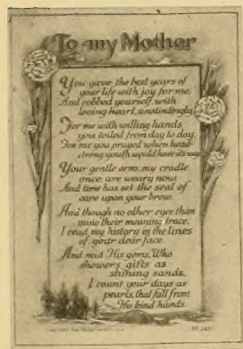 To my Mother
You gave the best years of
your life with joy for me,
And robbed yourself, with
loving heart, unstintingly.
For me with willing hands
you toiled from day to day,
For me you prayed when head-
strong youth would have its way.
Your gentle arms, my cradle
once, are weary now,
And time has set the seal of
care upon your brow.
And though no other eyes than
mine their meaning trace,
I read my history in the lines
of your dear face.
And mid His gems, Who
showers gifts as
shining sands,
I count your days as
pearls, that fall from
His kind hands.